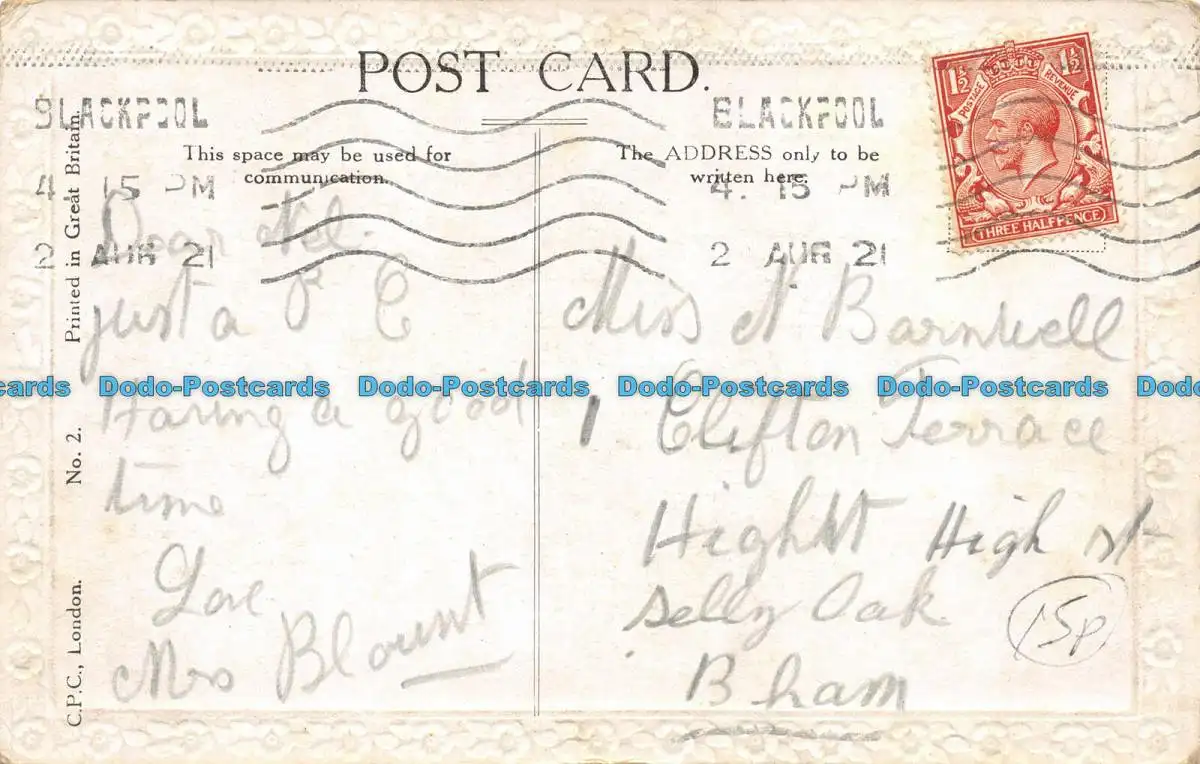 POST CARD.
BLACKPOOL
4. 15 PM
2 AUG 21
BLACKPOOL
4. 15 PM
2 AUG 21
1½ 1½
POSTAGE REVENUE
THREE HALFPENCE
This space may be used for
communication.
The ADDRESS only to be
written here.
Printed in Great Britain.
No. 2.
C.P.C., London.
Dear Nel.
just a P C
Having a good
time
Love
Mrs Blount
Miss N Barnwell
1 Clifton Terrace
High St High st
Selly Oak
B ham
15p
Dodo-Postcards Dodo-Postcards Dodo-Postcards Dodo-Postcards